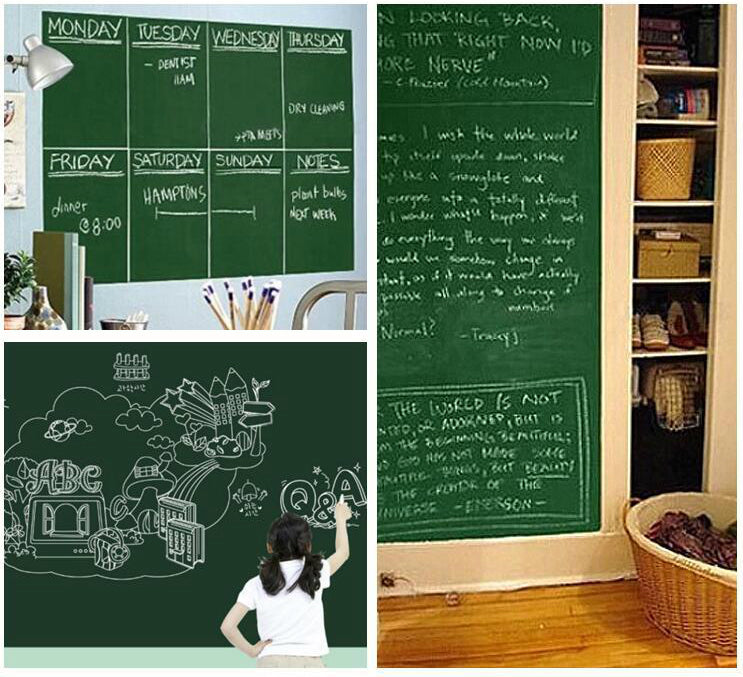 MONDAY
TUESDAY
WEDNESDAY
THURSDAY
- DENTIST
11AM
DRY CLEANING
→PTA MEETS
FRIDAY
SATURDAY
SUNDAY
NOTES
dinner
@8:00
HAMPTONS
plant bulbs
NEXT WEEK
N LOOKING BACK,
NG THAT RIGHT NOW I'D
ORE NERVE"
- C. Frazier (Cold Mountain)
mes I wish the whole world
tip itself upside down, shake
up like a snowglobe and
everyone into a totally different
I wonder what'd happen, if we'd
do everything the way we always
would we somehow change in
start, as if it would have actually
possible all along to change if
numbed
Normal?
- Tracey J
THE WORLD IS NOT
NTED, OR ADORNED, BUT IS
M THE BEGINNING BEAUTIFUL;
ND GOD HAS NOT MADE SOME
EAUTIFUL THINGS, BUT BEAUTY
THE CREATOR OF THE
UNIVERSE - EMERSON -
ABC
Q&A